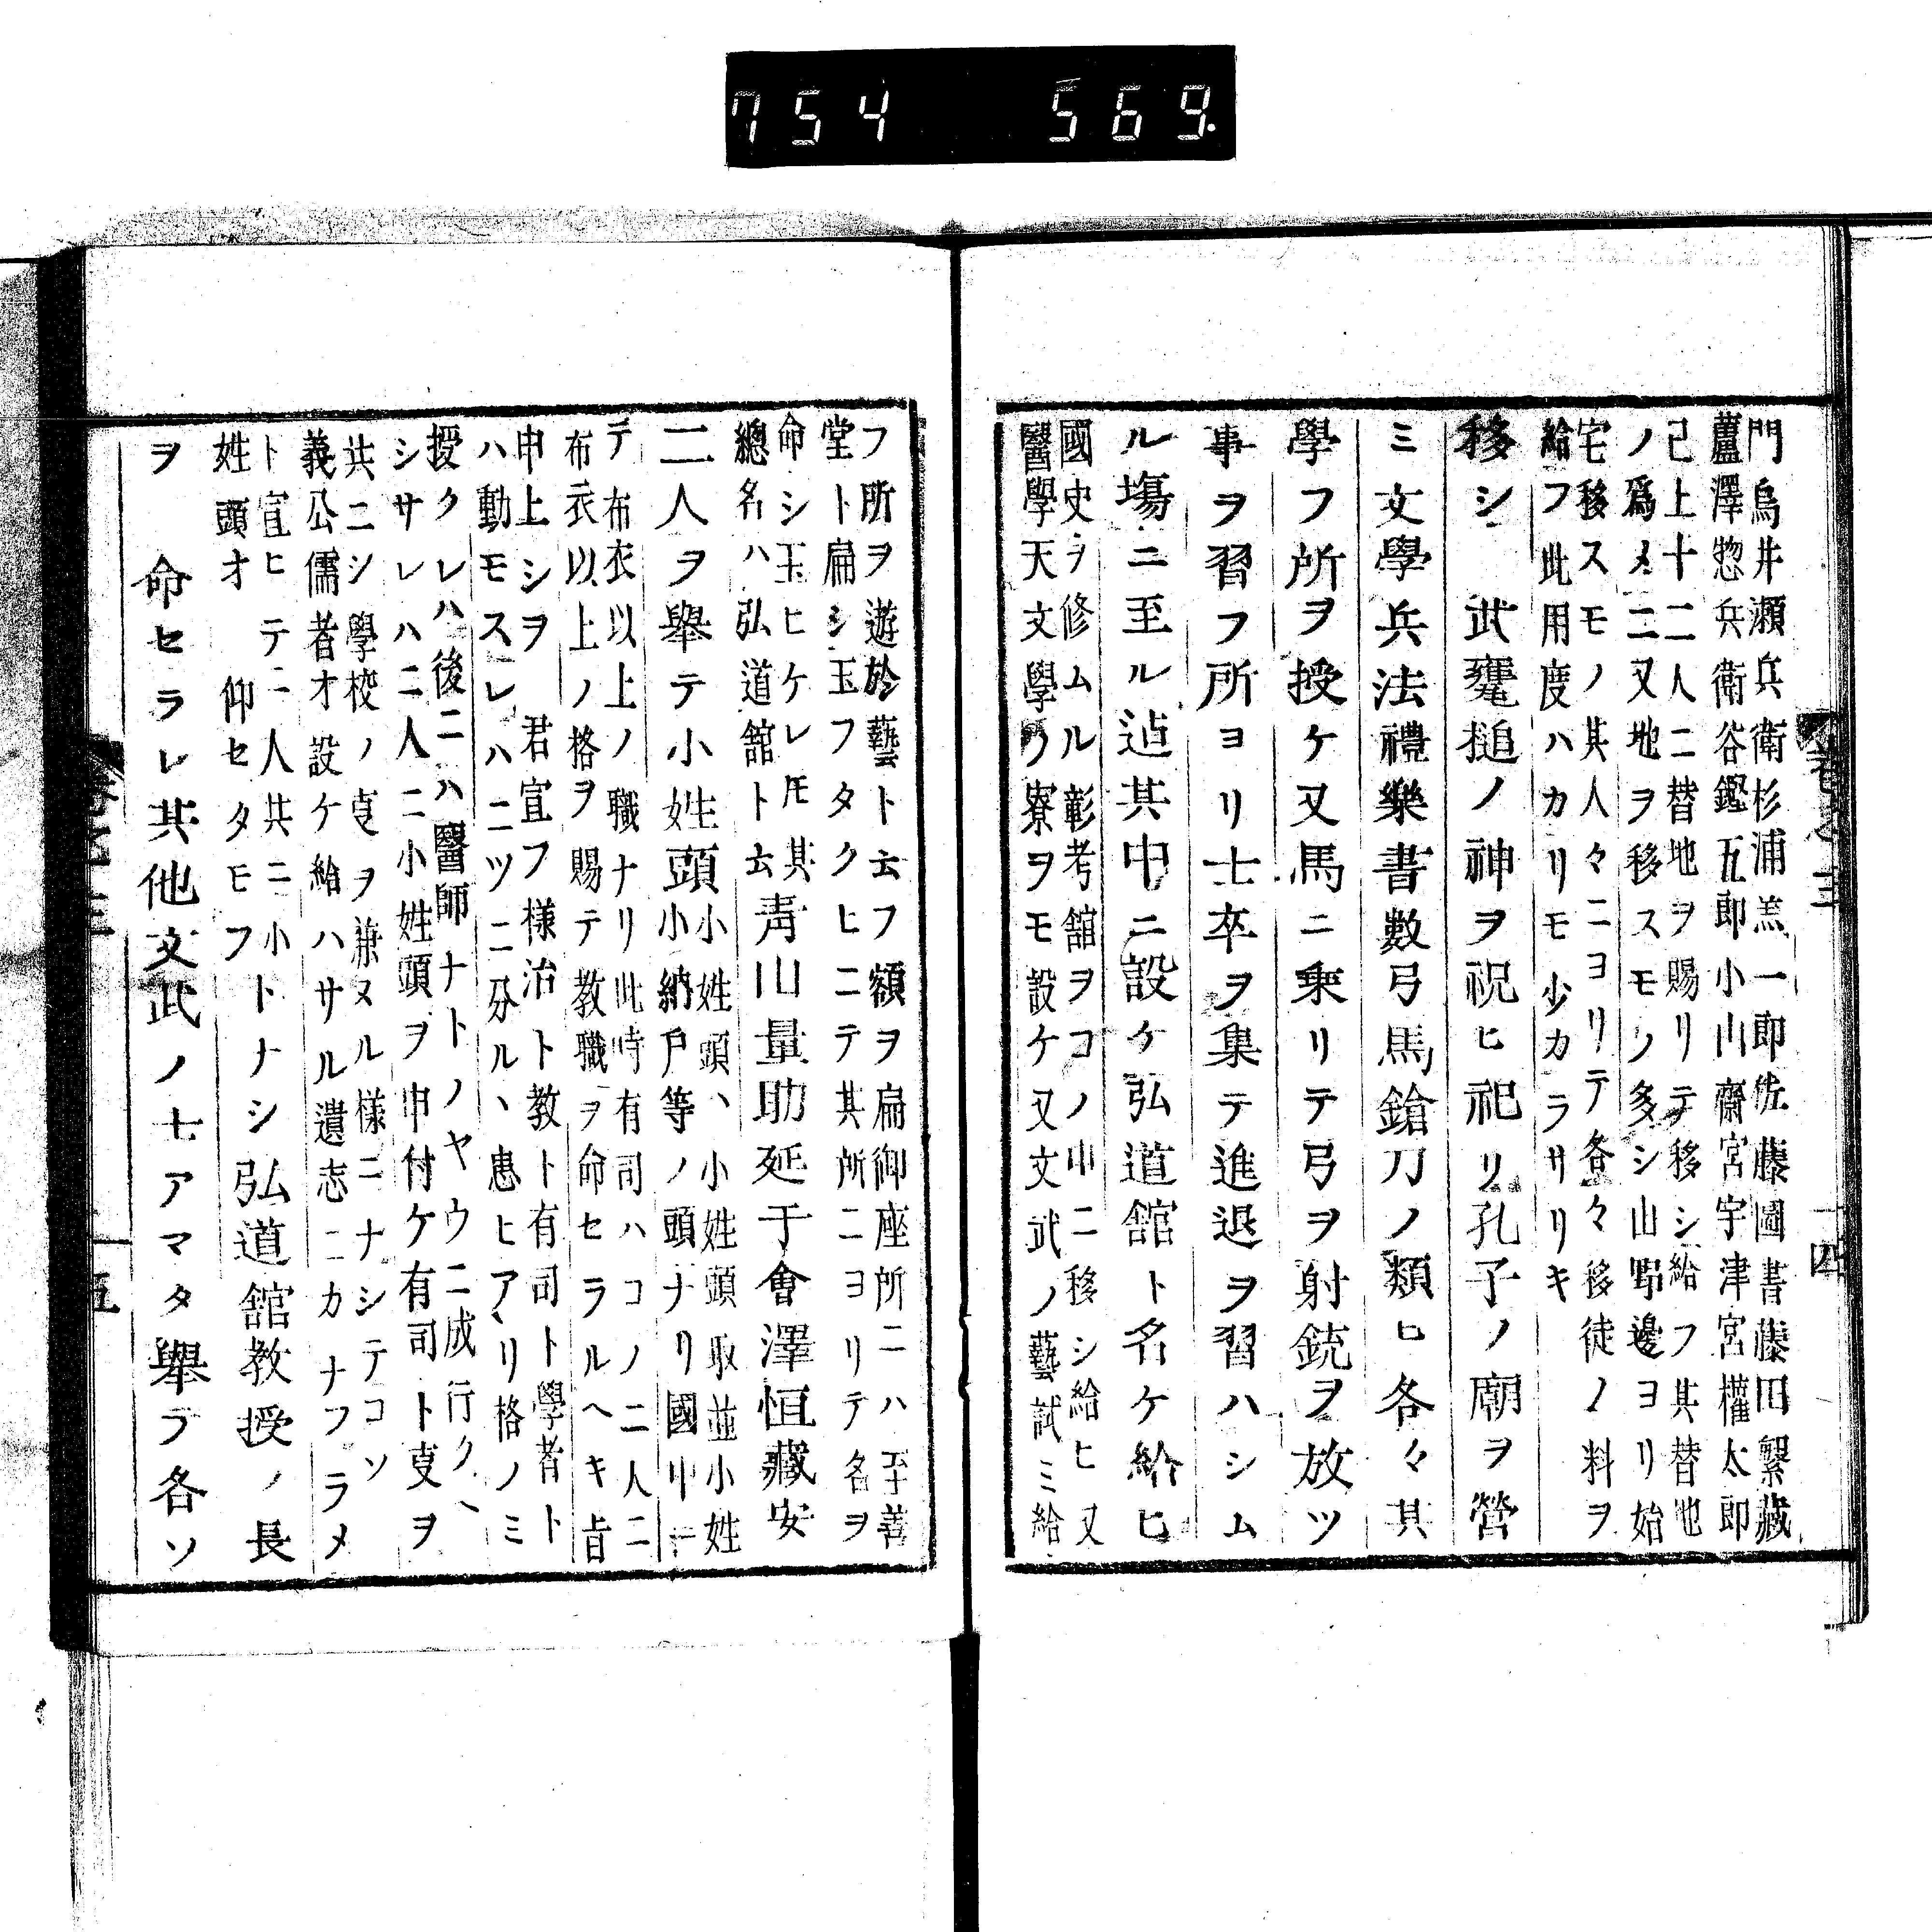 754 569.
門鳥井瀬兵衛杉浦羔一郎佐藤圖書藤田繫藏
蘆澤惣兵衛谷鑑五郎小山齋宮宇津宮權太郎
己上十二人ニ替地ヲ賜リテ移シ給フ其替地
ノ爲メニ又地ヲ移スモノ多シ山野邊ヨリ始
宅移スモノ其人々ニヨリテ各々移徒ノ料ヲ
給フ此用度ハカリモ少カラサリキ
移シ 武甕槌ノ神ヲ祝ヒ祀リ孔子ノ廟ヲ營
ミ文學兵法禮樂書數弓馬鎗刀ノ類ヒ各々其
學フ所ヲ授ケ又馬ニ乗リテ弓ヲ射銃ヲ放ツ
事ヲ習フ所ヨリ士卒ヲ集テ進退ヲ習ハシム
ル塲ニ至ル迠其中ニ設ケ弘道館ト名ケ給ヒ
國史ヲ修ムル彰考舘ヲコノ中ニ移シ給ヒ又
醫學天文學ノ寮ヲモ設ケ又文武ノ藝試ミ給
巻之三 十四
フ所ヲ遊於藝ト云フ額ヲ扁御座所ニハ至善
堂ト扁シ玉フタクヒニテ其所ニヨリテ名ヲ
命シ玉ヒケレ𪜈其
總名ハ弘道舘ト云
青山量助延于會澤恒藏安
二人ヲ舉テ小姓頭
小姓頭ハ小姓頭取並小姓
小納戸等ノ頭ナリ國中ニ
テ布衣以上ノ職ナリ此時有司ハコノ二人ニ
布衣以上ノ格ヲ賜テ教職ヲ命セラルヘキ旨
申上シヲ 君宣フ様治ト教ト有司ト學者ト
ハ動モスレハ二ツニ分ルヽ患ヒアリ格ノミ
授クレハ後ニハ醫師ナトノヤウニ成行クヘ
シサレハ二人ニ小姓頭ヲ申付ケ有司ト叓ヲ
共ニシ學校ノ叓ヲ兼ヌル様ニナシテコソ
義公儒者オ設ケ給ハサル遺志ニカナフラメ
ト宣ヒテ二人共ニ小
姓頭オ 仰セタモフ
トナシ弘道舘教授ノ長
ヲ 命セラレ其他文武ノ士アマタ舉ラ各ソ
巻之三 十五